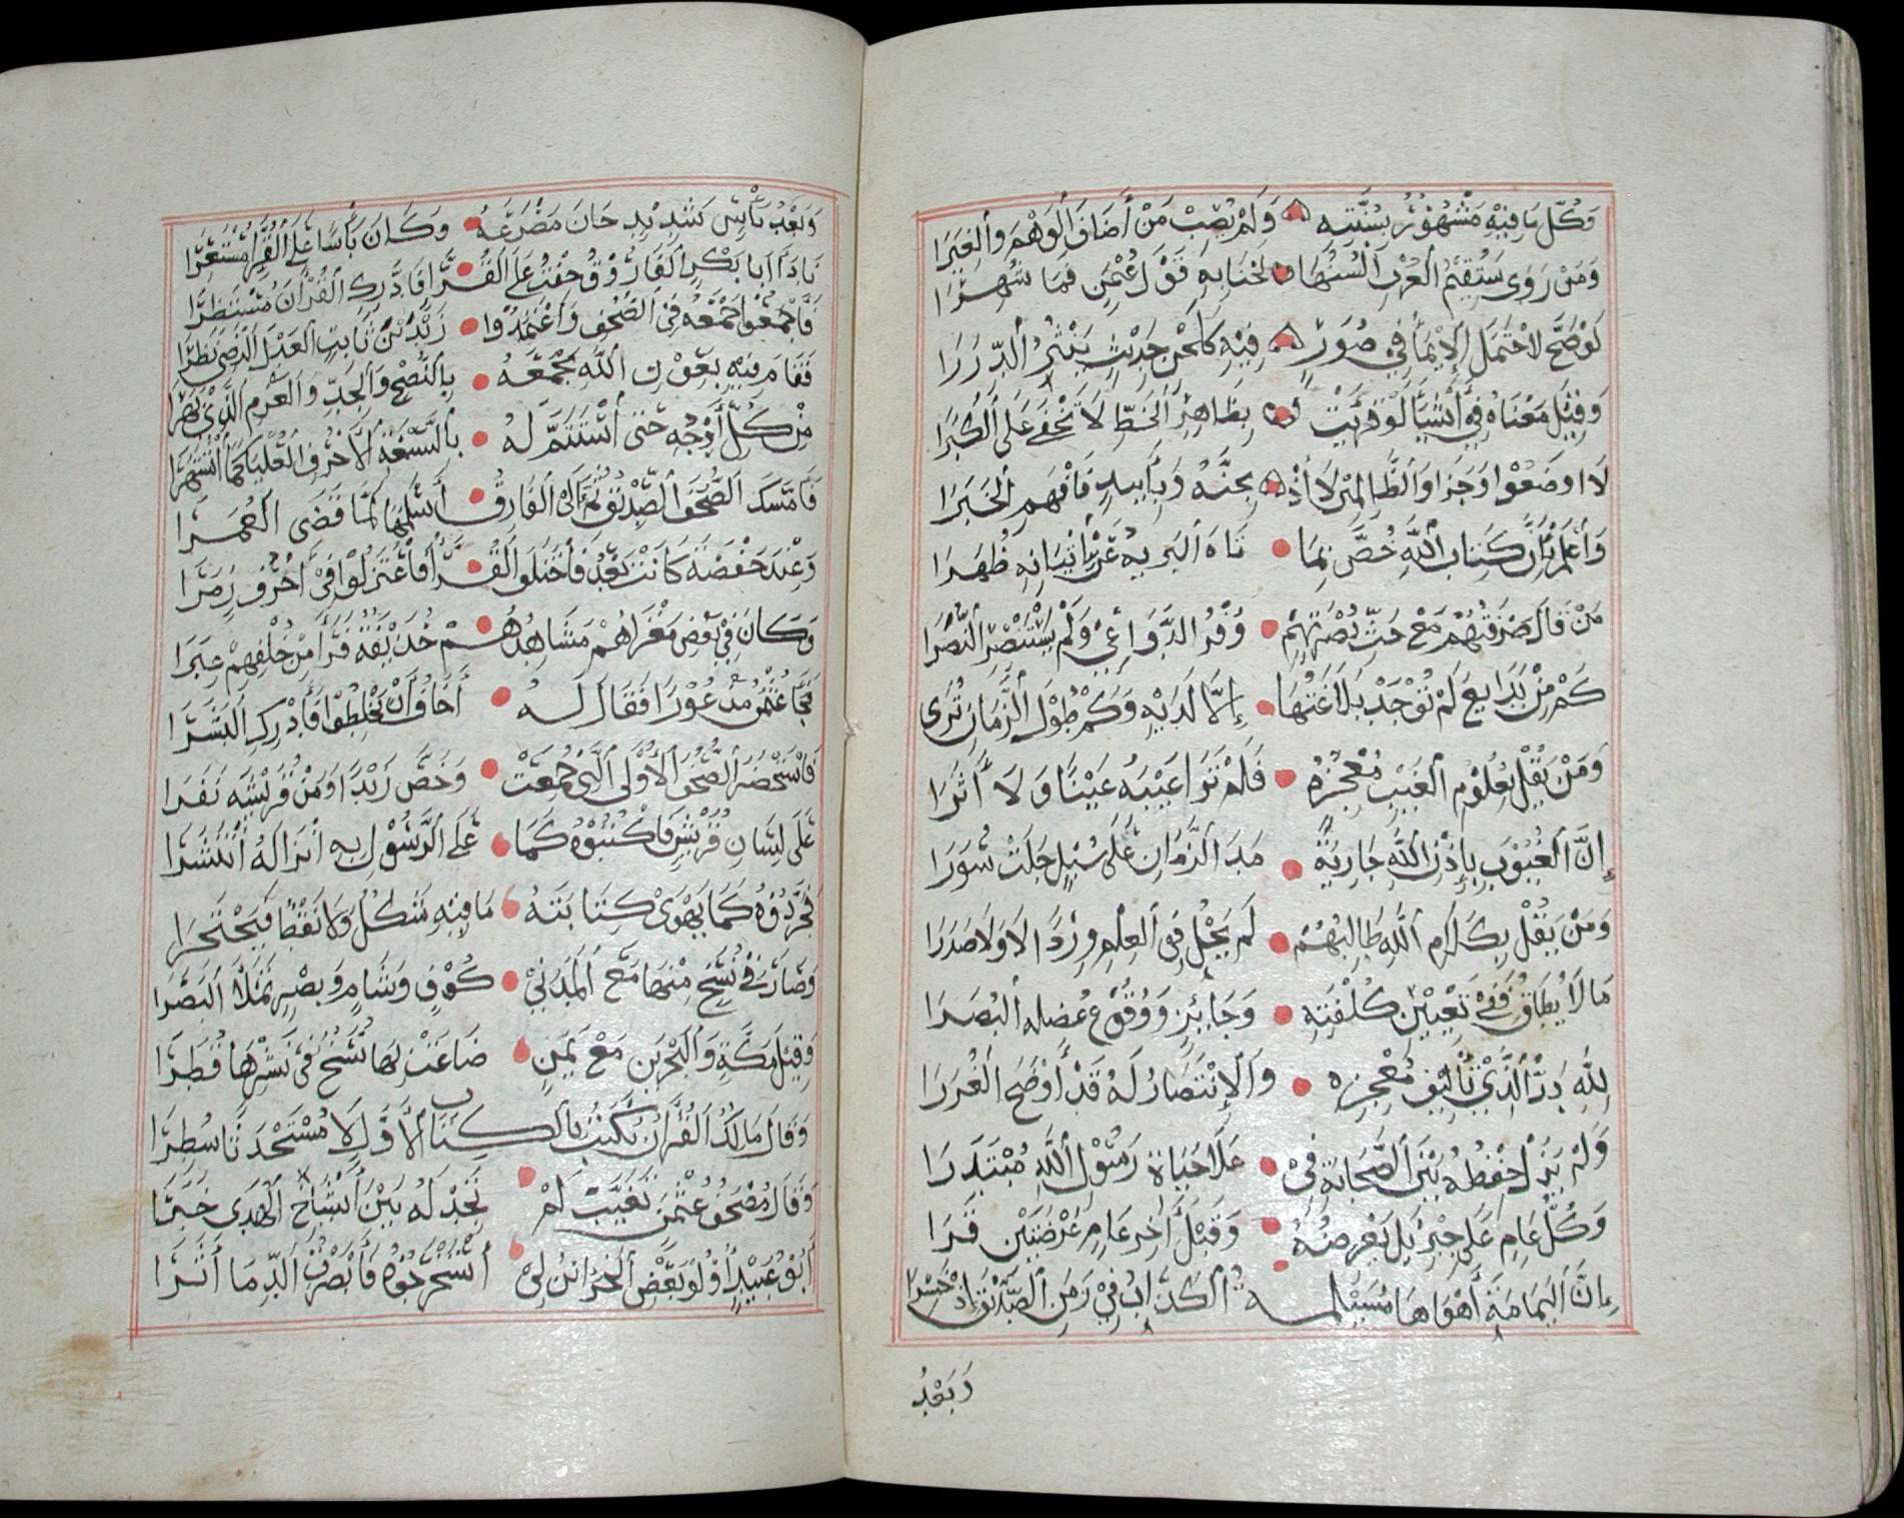 وَكُلُّ مَا فِيْهِ مَشْهُوْرٌ بِسُنَّتِهِ وَلَمْ يُصِبْ مَنْ أَضَافَ الْوَهْمَ وَالْغِيَرَا
وَمَنْ رَوَى سَتُقِيْمُ الْعُرْبُ أَلْسُنُهَا لَحْنًا بِهِ قَوْلَ عُثْمٰنٍ فَمَا شُهِرَا
لَوْ صَحَّ لَاحْتَمَلَ الْإِيْمَاءَ فِي صُوَرٍ فِيْهِ كَلَحْنِ حَدِيْثٍ يَنْثُرُ الدُّرَرَا
وَقِيْلَ مَعْنَاهُ فِي أَشْيَاءَ لَوْ قُرِئَتْ بِظَاهِرِ الْخَطِّ لَا تَخْفَى عَلَى الْكُبَرَا
لَا اَوْضَعُوْا وَجَزَاؤُا الظَّالِمِيْنَ لَا أَذْبَحَنَّهُ وَبِأَيْيدٍ فَافْهَمِ الْخَبَرَا
وَاعْلَمْ بِأَنَّ كِتَابَ اللّٰهِ خُصَّ بِمَا تَاهَ الْبَرِيَّةُ عَنْ إِتْيَانِهِ ظُهَرَا
مَنْ قَالَ صَرْفَتُهُمْ مَعْ حَثِّ نُصْرَتِهِمْ وُفْرُ الدَّوَاعِيْ وَلَمْ يَسْتَنْصِرِ النُّصَرَا
كَمْ مِنْ بَدَايِعَ لَمْ تُوْجَدْ بَلَاغَتُهَا إِلَّا لَدَيْهِ وَكَمْ طُوْلَ الزَّمَانِ تُرَى
وَمَنْ يَقُلْ بِعُلُوْمِ الْغَيْبِ مُعْجِزُهُ فَلَمْ تَرَ اعَيْبَهُ عَيْنًا وَلَا أَثَرَا
إِنَّ الْغُيُوْبَ بِإِذْنِ اللّٰهِ جَارِيَةٌ مَدَى الزَّمَانِ عَلَى سُبْلٍ جَلَتْ سُوَرَا
وَمَنْ يَقُلْ بِكَلَامِ اللّٰهِ طَالِبُهُمْ لَمْ يَحْلَ فِى الْعِلْمِ وِرْدًا لَا وَلَا صَدَرَا
مَا لَا يُطَاقُ فَفِيْ تَعْيِيْنِ كُلْفَتِهِ وَجَائِزٍ وَوُقُوْعٍ عُضْلَه الْبُصَرَا
لِلّٰهِ دَرُّ الَّذِيْ تَأْلِيْفُ مُعْجِزِهِ وَالْإِنْتِصَارُ لَهُ قَدْ أَوْضَحَ الْغُرَرَا
وَلَمْ يَزَلْ حِفْظُهُ بَيْنَ الصَّحَابَةِ فِيْ عَلَا حَيَاةِ رَسُوْلِ اللّٰهِ مُبْتَدَرَا
وَكُلُّ عَامٍ عَلَى جِبْرِيْلَ يَعْرِضُهُ وَقَبْلَ آخِرِ عَامٍ عَرْضَتَيْنِ قَرَا
إِنَّ الْيَمَامَةَ أَهْوَاهَا مُسَيْلِمَةُ الْكَذَّابُ فِيْ زَمَنِ الصِّدِّيْقِ إِذْ خَسِرَا
وَبَعْدَ
وَبَعْدَ بَأْسٍ شَدِيْدٍ حَانَ مَصْرَعُهُ وَكَانَ بَأْسًا عَلَى الْقُرَّاءِ مُسْتَعِرَا
نَادَى أَبَا بَكْرٍ الْفَارُوْقُ خِفْتُ عَلَى الْقُرَّاءِ فَادَّرِكِ الْقُرْآنَ مُسْتَطِرَا
فَأَجْمَعُوْا جَمْعَهُ فِي الصُّحْفِ وَاعْتَمَدُوا زَيْدَ بْنَ ثَابِتٍ الْعَدْلَ الرِّضَى نَظَرَا
فَقَامَ فِيْهِ بِعَوْنِ اللّٰهِ يَجْمَعُهُ بِالنُّصْحِ وَالْجِدِّ وَالْعَزْمِ الَّذِيْ بَهَرَا
مِنْ كُلِّ أَوْجُهِهِ حَتَى اسْتَتَمَّ لَهُ بِالسَّبْعَةِ الْأَحْرُفِ الْعُلْيَا كَمَا اشْتُهِرَا
فَأَمْسَكَ الصُّحُفَ الصِّدِّيْقُ ثُمَّ إِلَى الْفَارُوْقِ أَسْلَمَهَا لَمَّا قَضَى الْعُمُرَا
وَعِنْدَ حَفْصَةَ كَانَتْ بَعْدُ فَاخْتَلَفَ الْقُرَّاءُ فَاعْتَزَلُوْا فِيْ أَحْرُفٍ زُمَرَا
وَكَانَ فِيْ بَعْضِ مَغْزَاهُمْ مَشَاهِدُهُمْ حُذَيْفَةٌ فَرَأَى مِنْ خُلْفِهِمْ عِبَرَا
فَجَاءَ عُثْمٰنَ مَذْعُوْرًا فَقَالَ لَهُ أَخَافُ أَنْ يَخْلِطُوْا فَأَدْرِكِ الْبَشَرَا
فَاسْتَحْضَرَ الصُّحُفَ الْأُوْلَى الَّتِي جُمِعَتْ وَخَصَّ زَيْدًا وَمِنْ قُرَيْشِهِ نَفَرَا
عَلَى لِسَانِ قُرَيْشٍ فَاكْتُبُوْهُ كَمَا عَلَى الرَّسُوْلِ بِهِ انْزَالُهُ انْتَشَرَا
فَجَرَّدُوْهُ كَمَا يَهْوَى كِتَابَتَهُ مَا فِيْهِ شَكْلٌ وَلَا نَقْطٌ فَيَحْتَجِرَا
وَصَارَ فِيْ نُسَخٍ مِنْهَا مَعَ الْمَدَنِيْ كُوْفٍ وَشَامٍ وَبَصْرٍ تَمْلَأُ الْبَصَرَا
وَقِيْلَ مَكَّةَ وَالْبَحْرَيْنِ مَعْ يَمَنٍ ضَاعَتْ بِهَا نُسَخٌ فِيْ نَشْرِهَا قُطُرَا
وَقَالَ مَالِكٌ الْقُرْآنُ يُكْتَبُ بِالْكِتَابِ الْأَوَّلِ لَا مُسْتَحْدَثًا سُطِرَا
وَقَالَ مُصْحَفُ عُثْمٰنٍ تَغَيَّبَ لَمْ نَجِدْ لَهُ بَيْنَ أَشْيَاخِ الْهُدَى خَبَرَا
أَبُوْ عُبَيْدٍ أُوْلُوْ بَعْضِ الْخَزَائِنِ لِيْ اسْتَخْرَجُوْهُ فَأَبْصَرْتُ الدِّمَا أَثَرَا